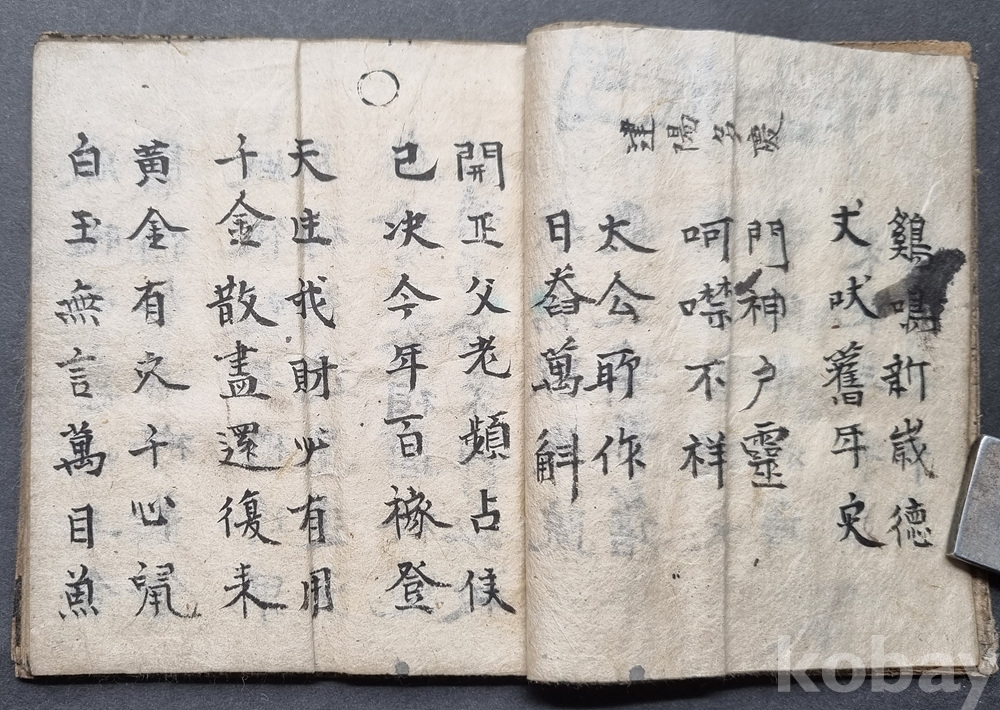 建陽多慶
鷄鳴新歲德
犬吠舊年灾
門神戶靈
呵噤不祥
太公所作
日舂萬斛
開正父老頻占候
已决今年百稼登
天生我財必有用
千金散盡還復来
黃金有穴千心鼠
白玉無言萬目魚
kobay